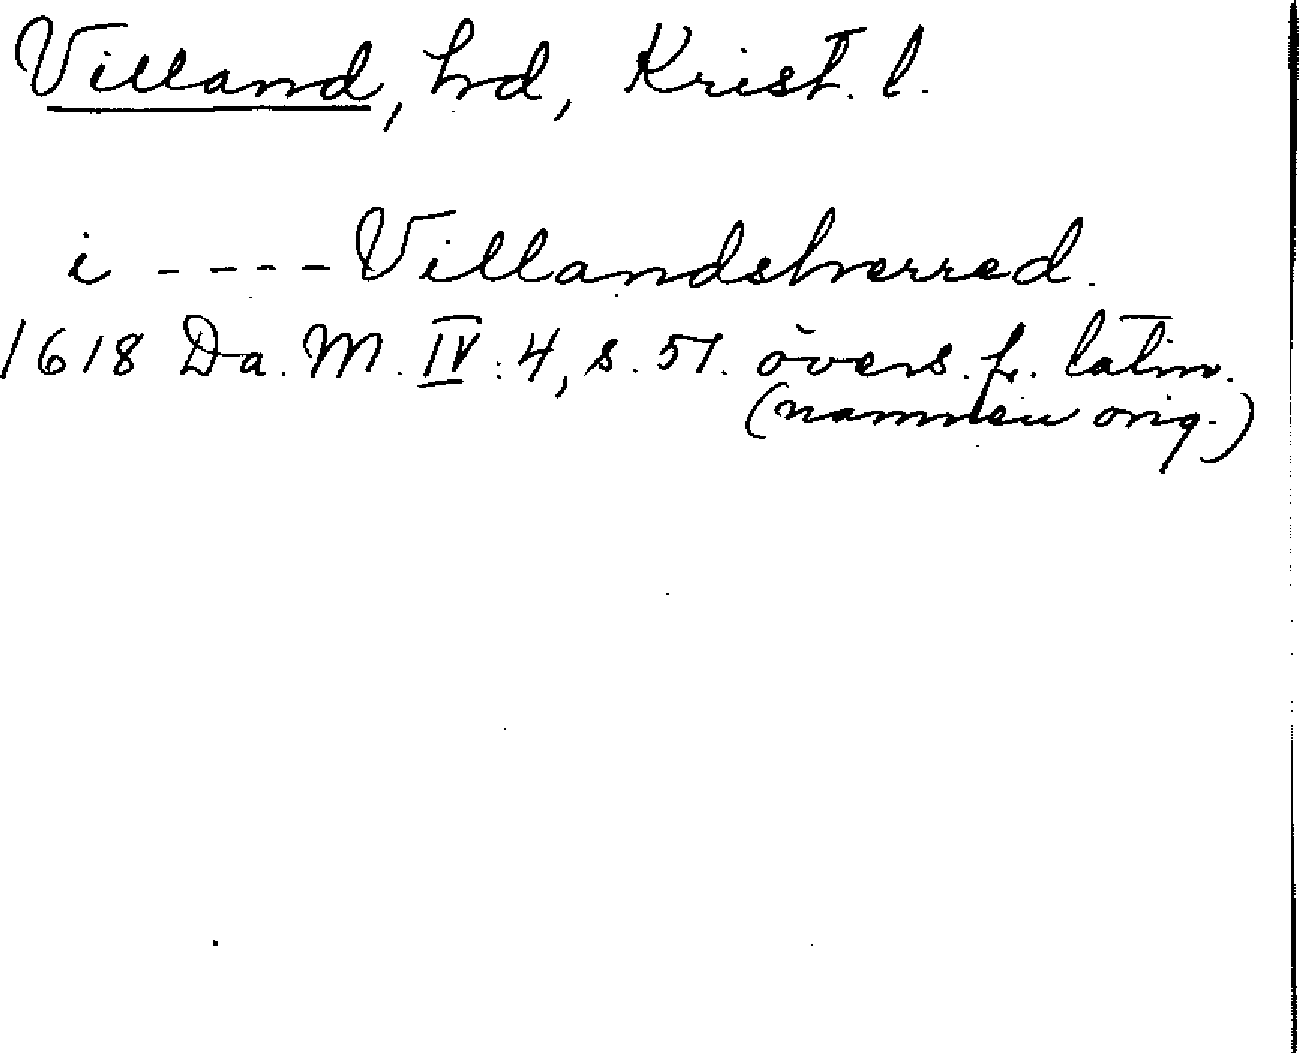 Villand, hd, Krist. l.
i ---- Villandsherred.
1618 Da. M. IV: 4, s. 51. övers. fr. latin.
(namnen orig.)